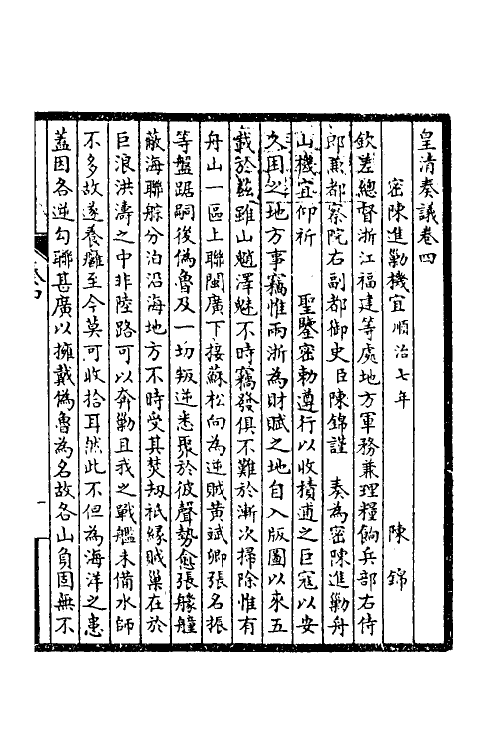 皇清奏議卷四
密陳進勦機宜 順治七年 陳錦
欽差總督浙江福建等處地方軍務兼理糧餉兵部右侍
郎兼都察院右副都御史臣陳錦謹 奏為密陳進勦舟
山機宜仰祈 聖鑒密勅遵行以收積逋之巨寇以安
久困之地方事竊惟兩浙為財賦之地自入版圖以來五
載於茲雖山魈澤魅不時竊發俱不難於漸次掃除惟有
舟山一區上聯閩廣下接蘇松向為逆賊黃斌卿張名振
等盤踞嗣後偽魯及一切叛逆悉聚於彼聲勢愈張艨艟
蔽海聯䑸分泊沿海地方不時受其焚刼祇緣賊巢在於
巨浪洪濤之中非陸路可以奔勦且我之戰艦未備水師
不多故遂養癰至今莫可收拾耳然此不但為海洋之患
蓋因各逆勾聯甚廣以擁戴偽魯為名故各山負固無不
卷四
一